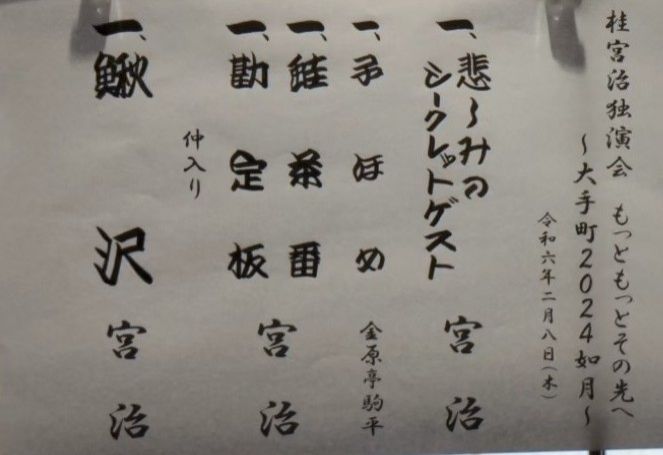 桂宮治独演会 もっともっとその先へ
～大手町2024如月～
令和六年二月八日(木)
一、悲しみの
シークレットゲスト 宮治
一、子ほめ 金原亭駒平
一、蛙茶番
一、勘定板 宮治
仲入り
一、鰍沢 宮治